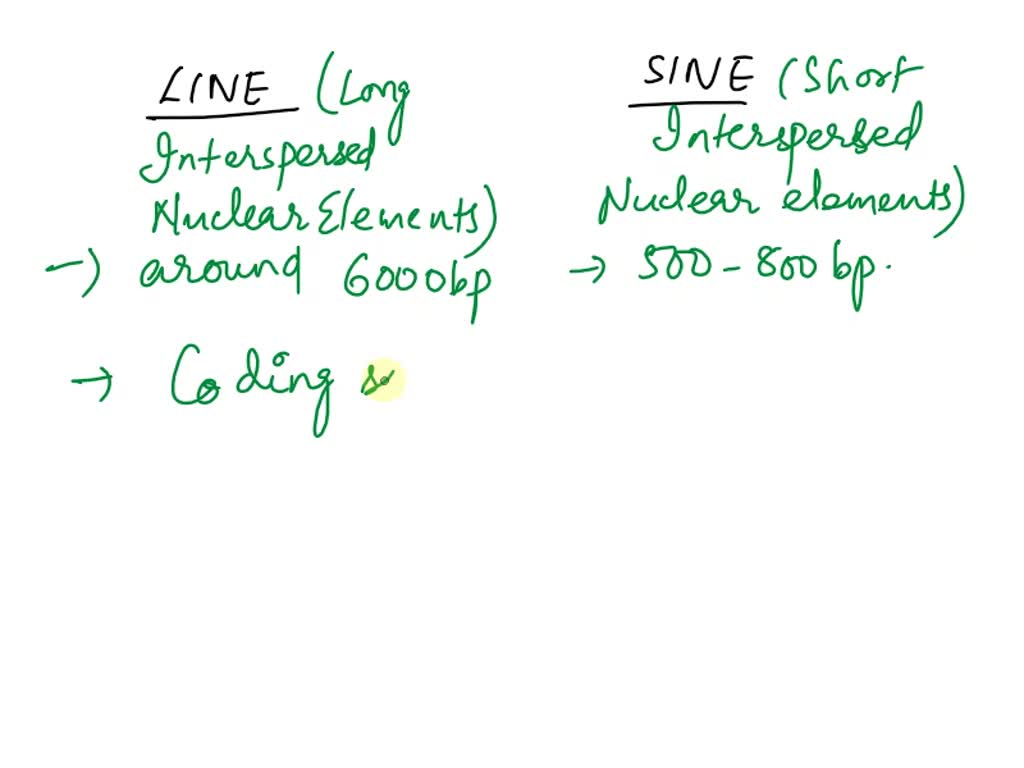 LINE (Long
Interspersed
Nuclear Elements)
→ around 6000bp
→ Coding
SINE (Short
Interspersed
Nuclear elements)
→ 500-800 bp.